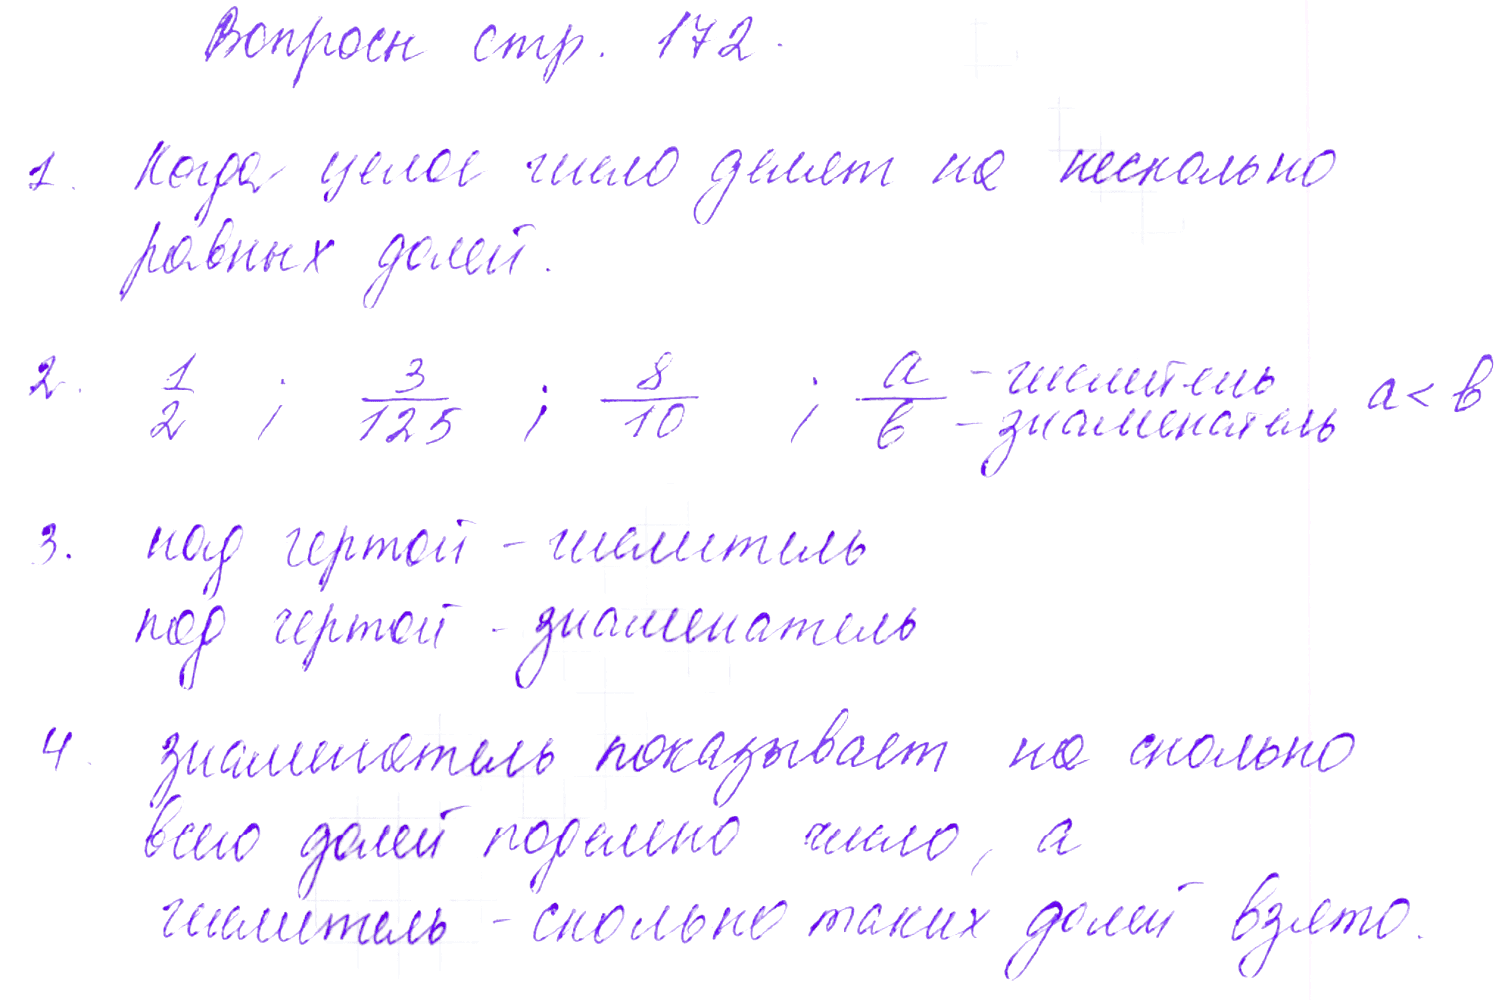 Вопросы стр. 172.
1. Когда целое число делят на несколько
равных долей.
2. 1/2 ; 3/125 ; 8/10 ; a/b - числитель - знаменатель a < b
3. над чертой - числитель
под чертой - знаменатель
4. знаменатель показывает на сколько
всего долей поделено число, а
числитель - сколько таких долей взято.